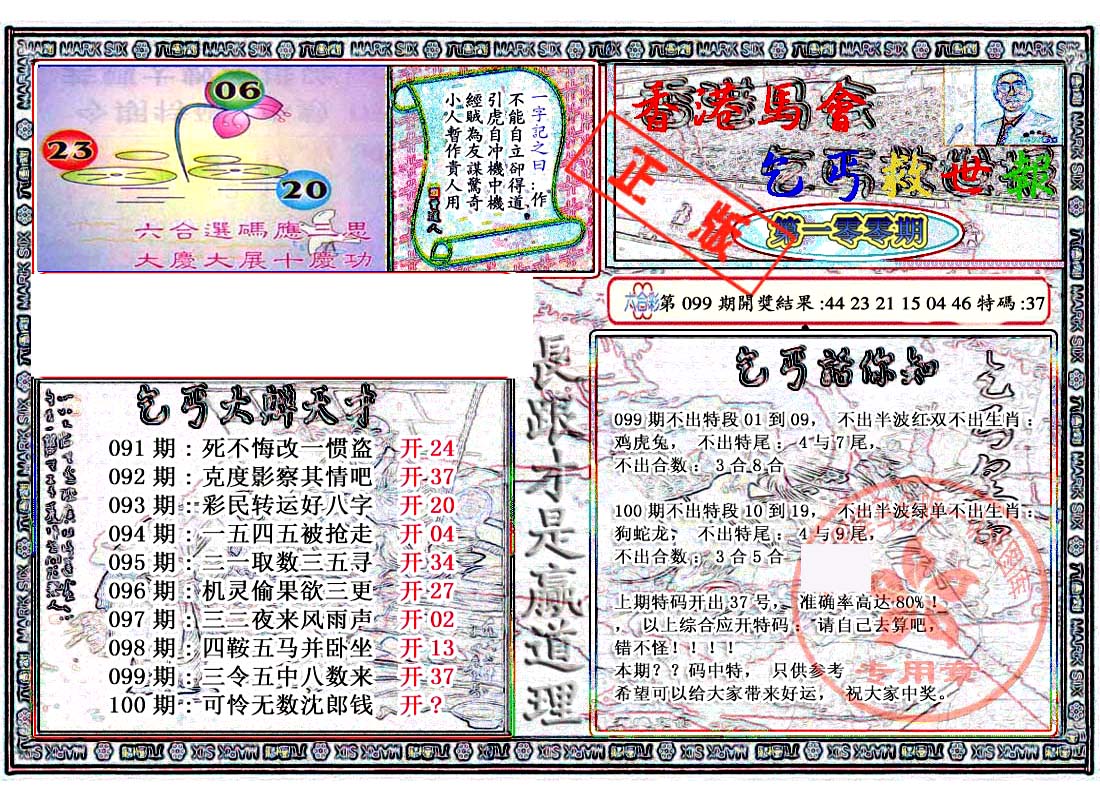 MARK SIX 六合彩 MARK SIX 六合彩 MARK SIX 六合彩 MARK SIX
06
23
20
六合選碼應三思
大慶大展十慶功
一字記之曰：作
不能自立卻得道
引虎自冲機中機
經賊為友謀驚奇
小人暫作貴人用
香港馬會
乞丐救世報
第一零零期
正版
六合彩第 099 期開獎結果 :44 23 21 15 04 46 特碼 :37
長跟才是贏道理
091 期：死不悔改一惯盗 开 24
092 期：克度影察其情吧 开 37
093 期：彩民转运好八字 开 20
094 期：一五四五被抢走 开 04
095 期：三一取数三五寻 开 34
096 期：机灵偷果欲三更 开 27
097 期：三二夜来风雨声 开 02
098 期：四鞍五马并卧坐 开 13
099 期：三令五中八数来 开 37
100 期：可怜无数沈郎钱 开 ?
乞丐話你知
099 期不出特段 01 到 09， 不出半波红双不出生肖：
鸡虎兔， 不出特尾：4 与 7尾，
不出合数：3 合 8 合
100 期不出特段 10 到 19， 不出半波绿单不出生肖：
狗蛇龙， 不出特尾：4 与 9 尾，
不出合数：3 合 5 合
上期特码开出 37 号， 准确率高达 80%！
， 以上综合应开特码： 请自己去算吧，
错不怪！！！！
本期？？码中特， 只供参考
希望可以给大家带来好运， 祝大家中奖。
专用章